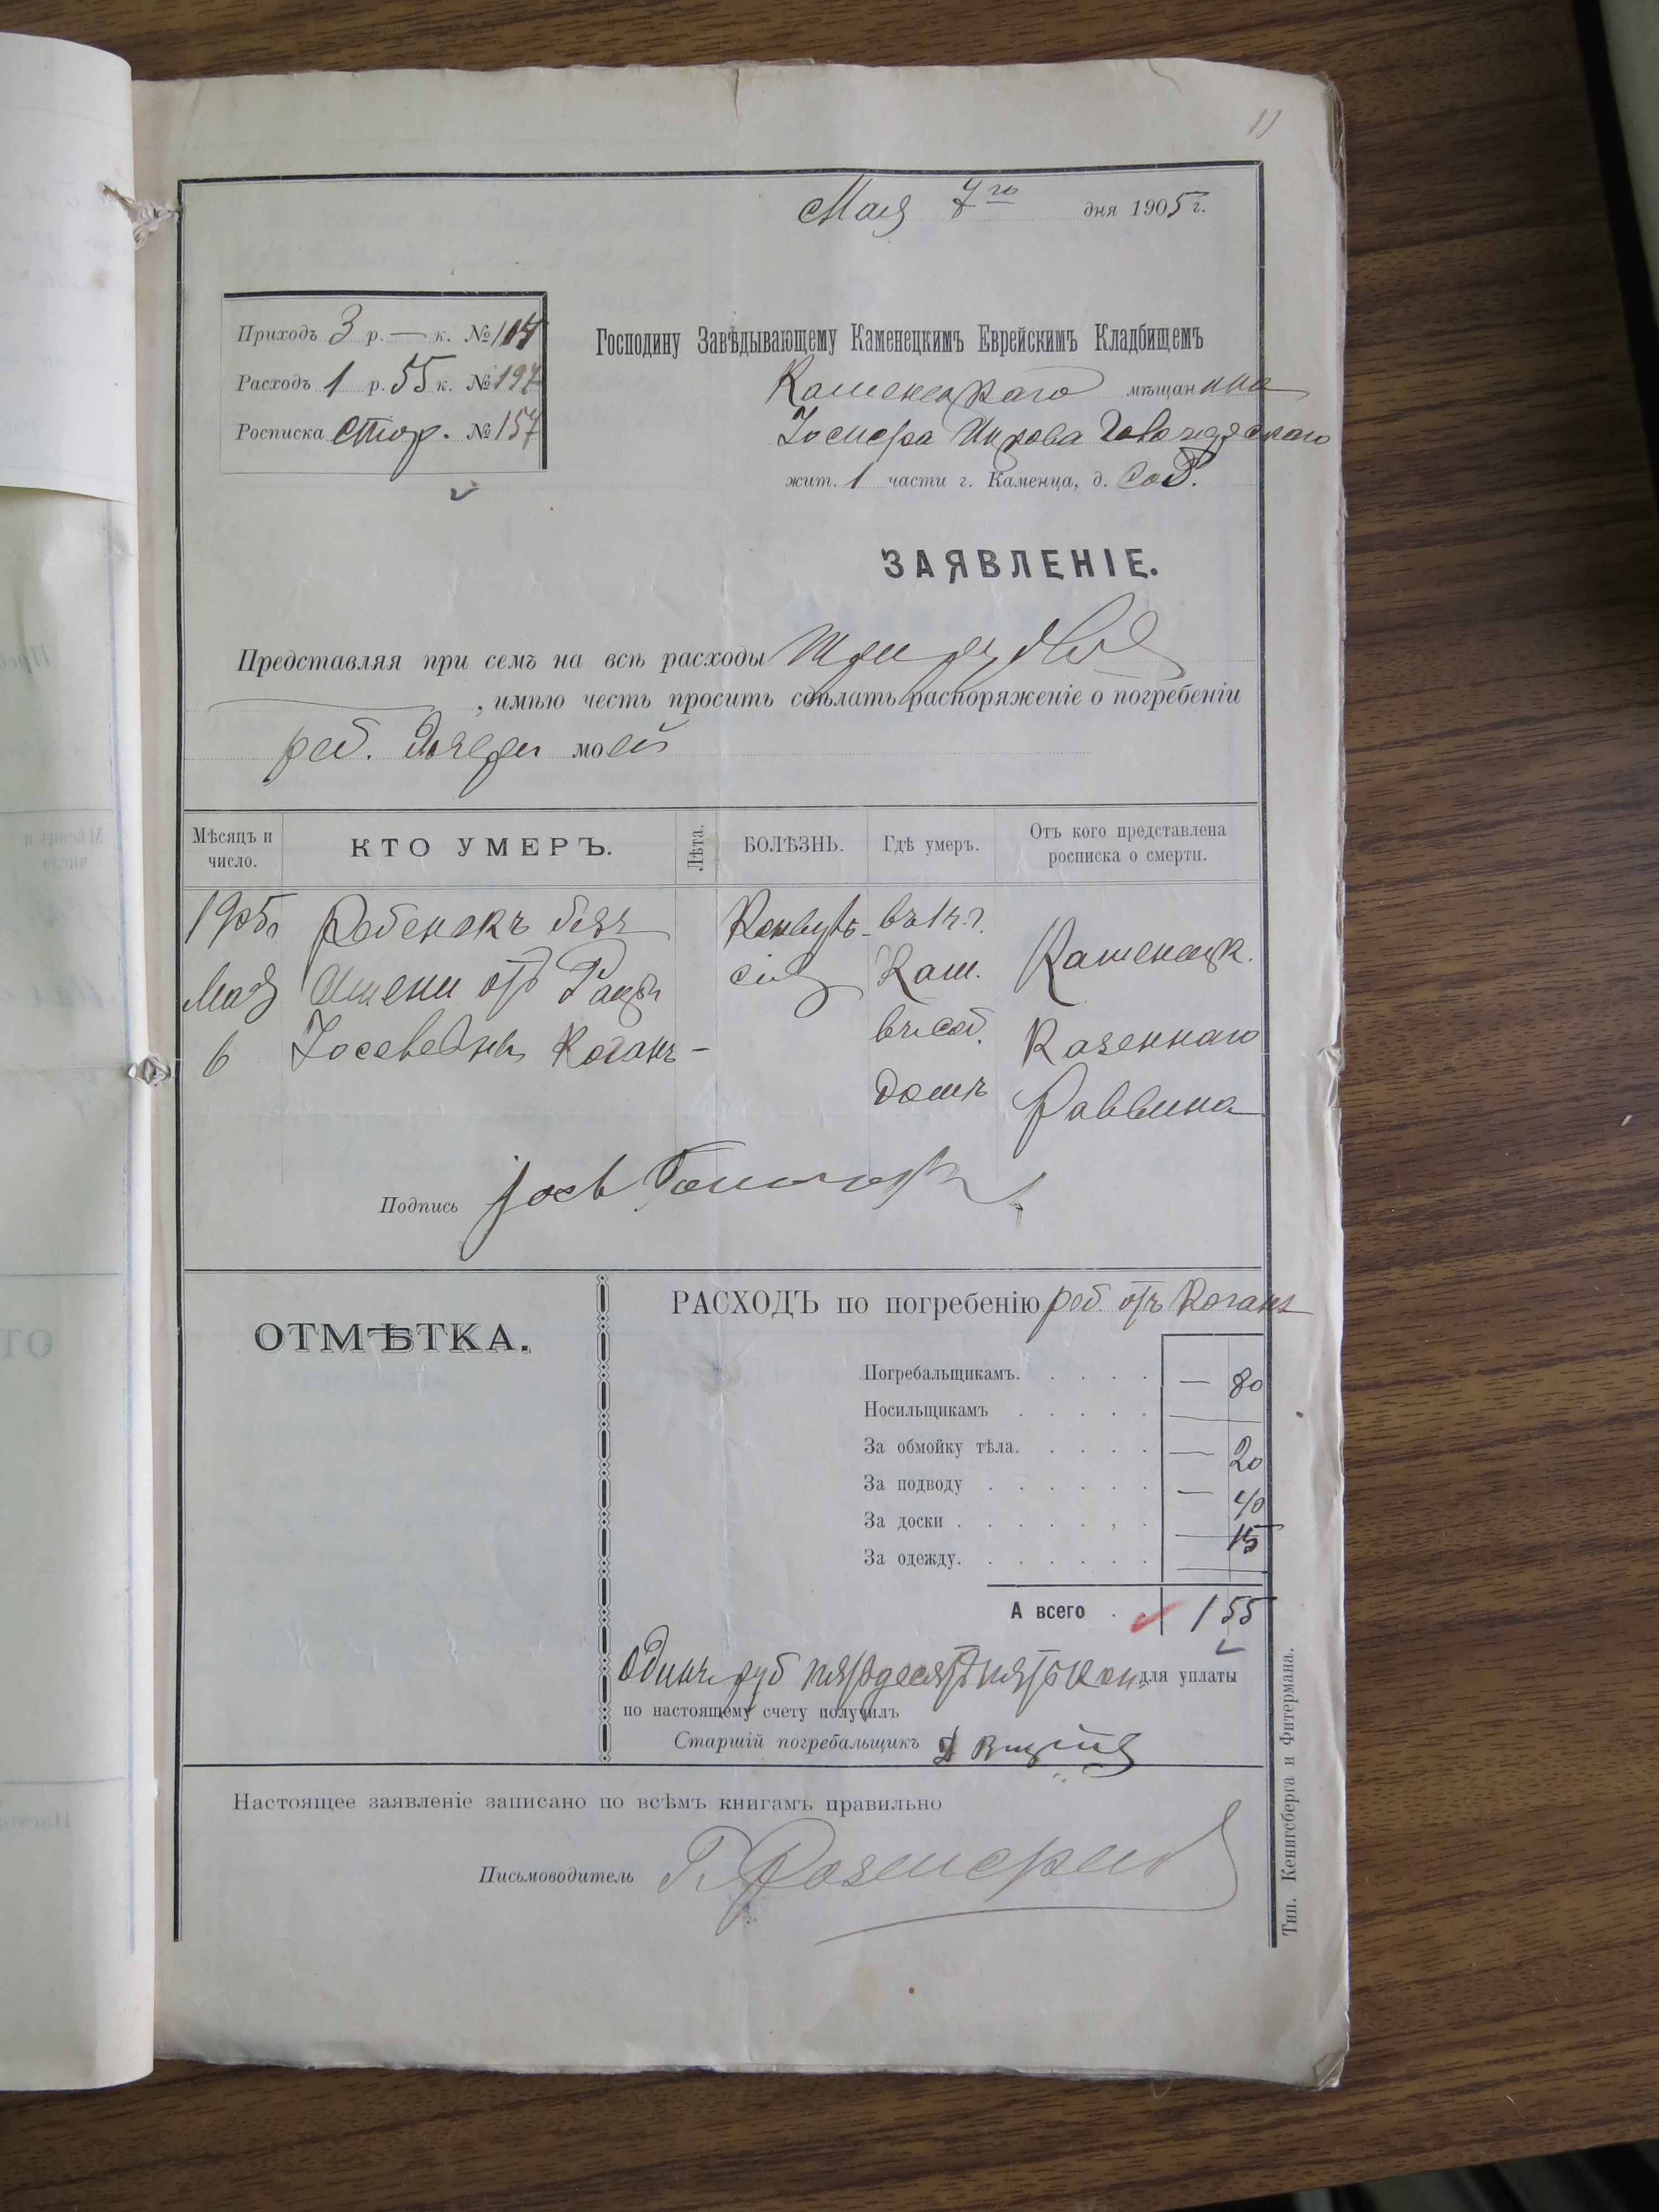 11
Мая 7го дня 1905 г.
Приходъ 3 р. — к. №
Расходъ 1 р. 55 к. № 197
Росписка стор. № 157
Господину Завѣдывающему Каменецкимъ Еврейскимъ Кладбищемъ
Каменецкаго мѣщанина
жит. 1 части г. Каменца, д. соб.
ЗАЯВЛЕНІЕ.
Представляя при семъ на всѣ расходы три рубля
, имѣю честь просить сдѣлать распоряженіе о погребеніи
реб. дочери моей
Мѣсяцъ и число.
КТО УМЕРЪ.
Лѣта.
БОЛѢЗНЬ.
Гдѣ умеръ.
Отъ кого представлена росписка о смерти.
1905 г.
Мая
6
Ребенокъ безъ
имени отъ
Іосевовны Коганъ
Конвуль-
сія
въ 1 ч. г.
Кам.
въ соб.
домѣ
Каменецк.
Казеннаго
Раввина
Подпись
ОТМѢТКА.
РАСХОДЪ по погребенію реб. отъ Коганъ
Погребальщикамъ. — 80
Носильщикамъ
За обмойку тѣла. — 20
За подводу — 40
За доски — 15
За одежду.
А всего 1 55
Одинъ руб пятьдесятъ пять коп. для уплаты
по настоящему счету получилъ
Старшій погребальщикъ
Настоящее заявленіе записано по всѣмъ книгамъ правильно
Письмоводитель
Тип. Кенигсберга и Фитермана.